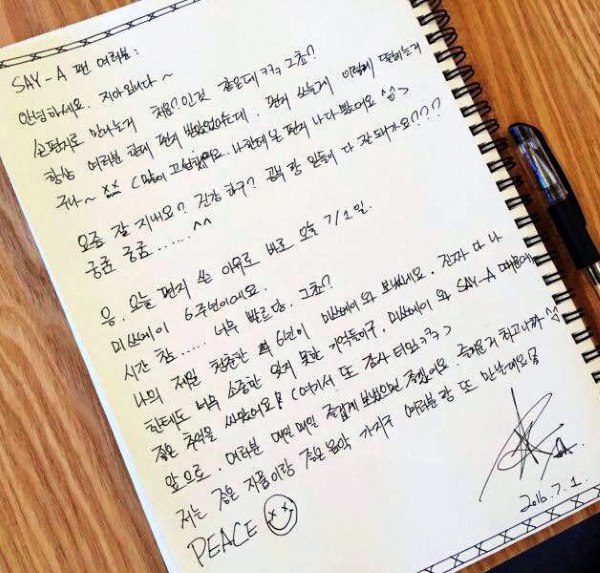 SAY-A 팬 여러분:
안녕하세요. 지아입니다~
손편지로 만나는게 처음?인것 같은데 ㅋㅋㅋ 그쵸?
항상 여러분 한테 편지 받았었는데. 편지 쓰는게 이렇게 떨리는거
구나~ xx (많이 고생했어요. 나한테 온 편지 나 다 봤어요 ^^)
요즘 잘 지내요? 건강 하구? 공부 랑 일들이 다 잘 돼가요???
궁금 궁금......^^
응. 오늘 편지 쓴 이유로 바로 오늘 7/1일.
미쓰에이 6주년이에요.
시간 참...... 너무 빨르당. 그쵸?
나의 제일 청춘한 6년이 미쓰에이와 보냈네요. 진짜 다 나
한테도 너무 소중한 잊지 못한 기억들이구. 미쓰에이 와 SAY-A 때문에
좋은 추억을 쌓았어요 (여기서 또 감사 타임 ㅋㅋㅋ>
앞으로. 여러분 매번 매일 즐겁게 보냈으면 좋겠어요. 즐거운거 최고니까 ^^
저는 좋은 작품이랑 좋은 음악 가지구 여러분 랑 또 만날게요
PEACE
JIA
2016.7.1.